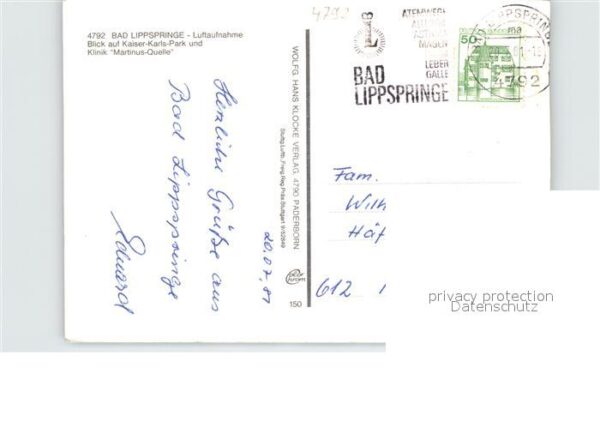 4792 BAD LIPPSPRINGE - Luftaufnahme
Blick auf Kaiser-Karls-Park und
Klinik "Martinus-Quelle"
Herzliche Grüße aus
Bad Lippspringe
Eduard
20.07.81
WOLFG. HANS KLOCKE VERLAG, 4790 PADERBORN
Stuttg. Luftb. Freig. Reg. Präs. Stuttgart 9/52849
150
4792
ATEMWEGE
ALLERGIE
ASTHMA
MAGEN
LEBER
GALLE
BAD
LIPPSPRINGE
50
BAD LIPPSPRINGE
4792
Fam.
Wilh
Häf
612
privacy protection
Datenschutz